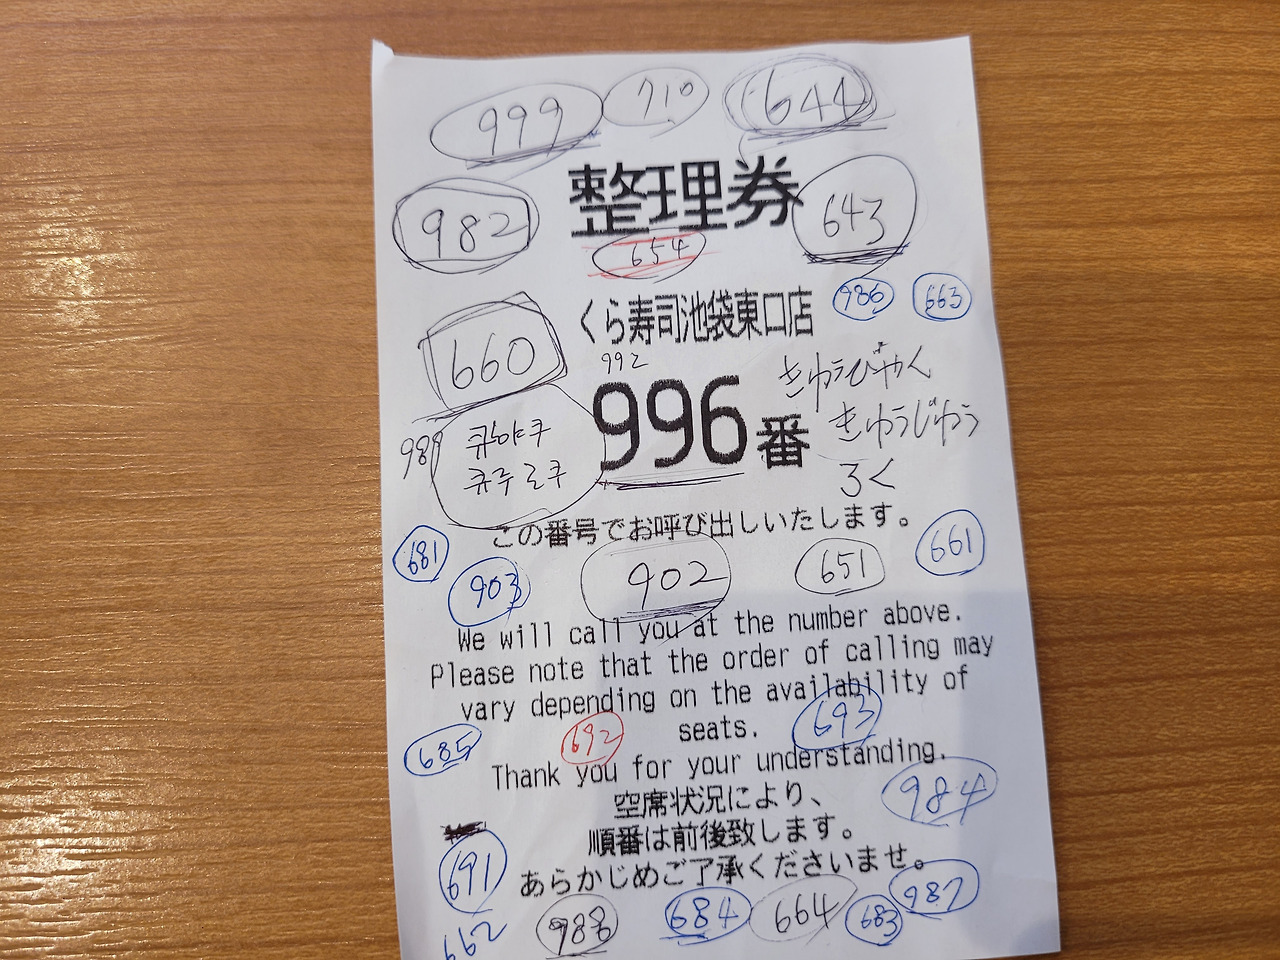 999 710 644
整理券
982 643
654
くら寿司池袋東口店
986 663
660
992
996番
きゅうひゃく
きゅうじゅう
ろく
989
큐햐쿠
큐쥬로쿠
この番号でお呼び出しいたします。
681 903 902 651 661
We will call you at the number above.
Please note that the order of calling may
vary depending on the availability of
seats.
685 692 693
Thank you for your understanding.
984
空席状況により、
順番は前後致します。
あらかじめご了承くださいませ。
691
662 988 684 664 683 987